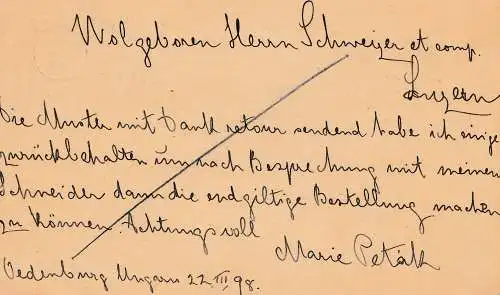 Wolgeboren Herrn Schweizer et comp.
Luzern
Die Muster mit Dank retour sendend habe ich einige
zurückbehalten um nach Besprechung mit meinem
Schneider dann die endgiltige Bestellung machen
zu können. Achtungsvoll
Marie Peták
Oedenburg Ungarn 22. III. 98.